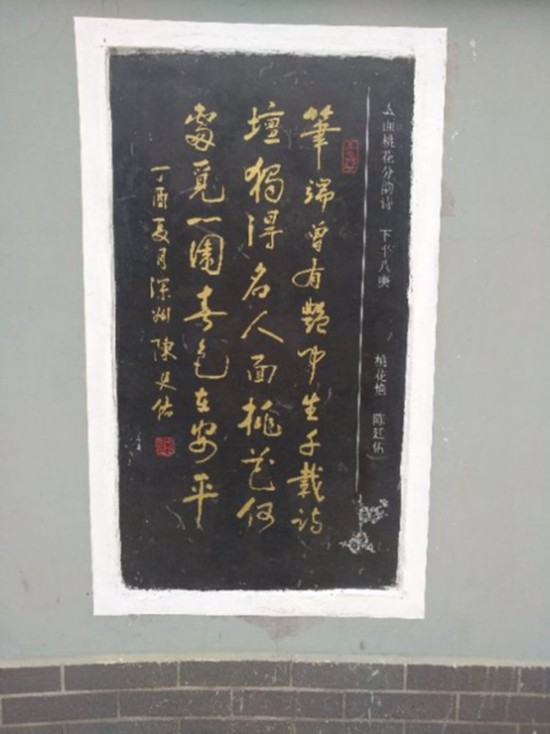 人面桃花分韵诗 下平八庚
桃花姬 陈廷佑
筆端曾有艷中生千載詩
壇獨得名人面桃花何
處覓一園春色在安平
丁酉夏月深州陳廷佑